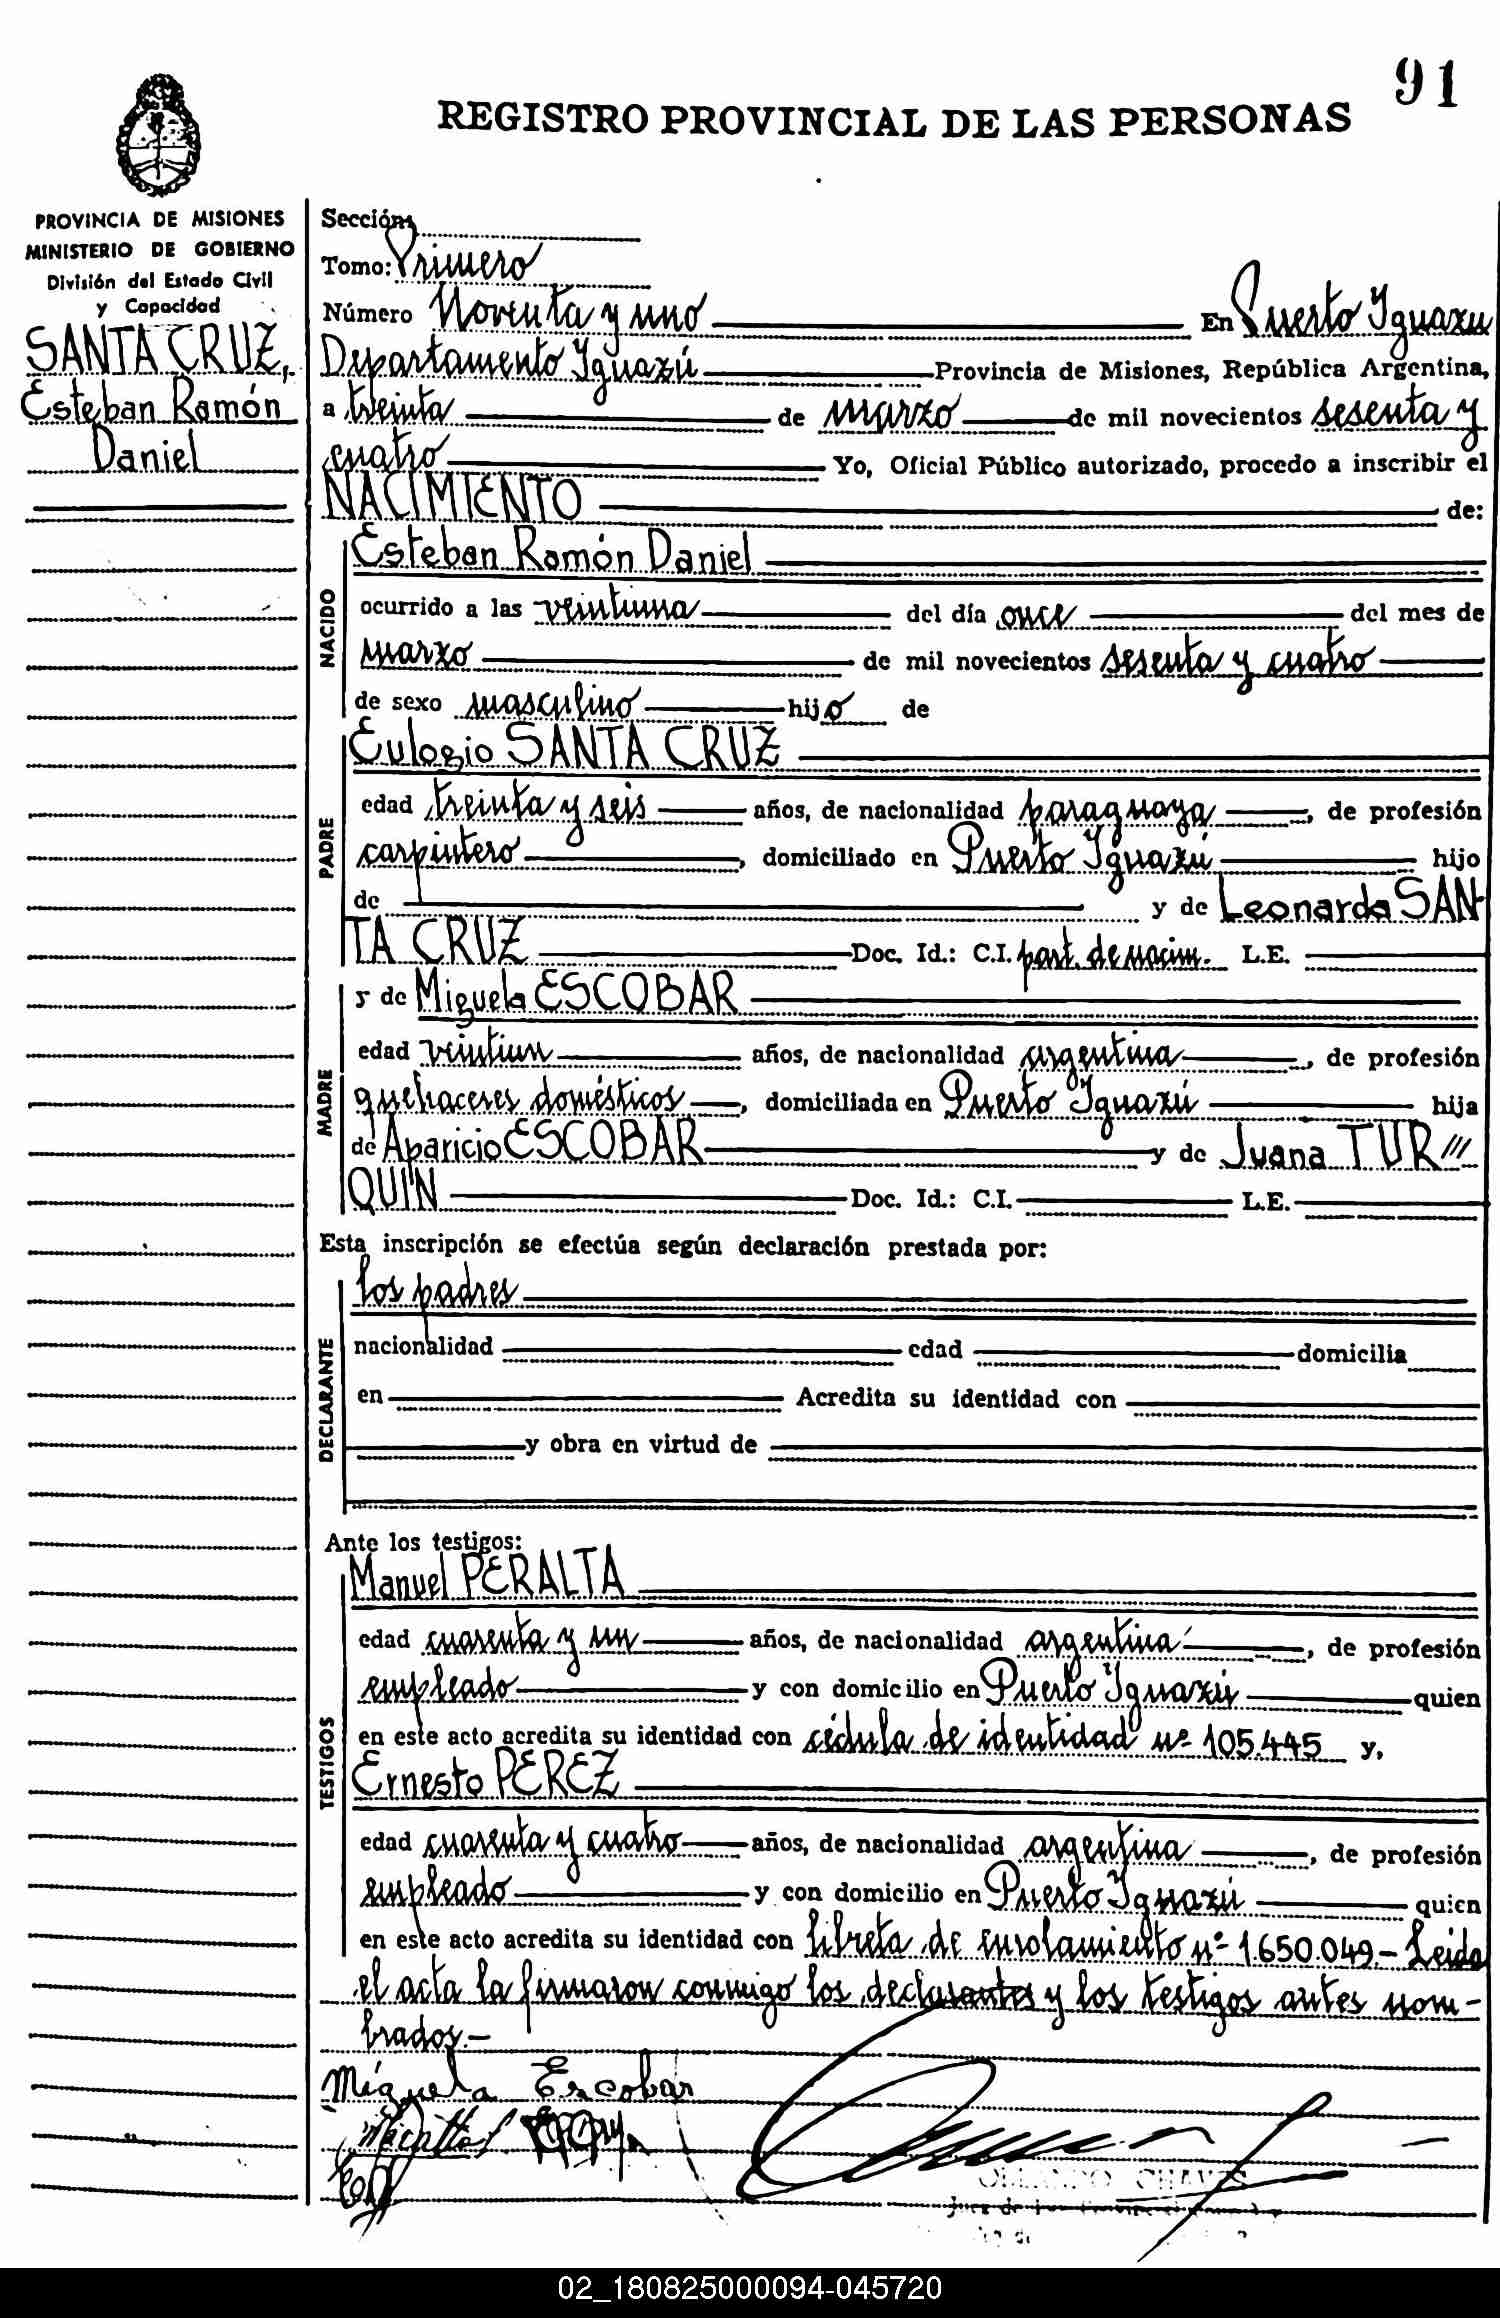 91
REGISTRO PROVINCIAL DE LAS PERSONAS
PROVINCIA DE MISIONES
MINISTERIO DE GOBIERNO
División del Estado Civil
y Capacidad
SANTA CRUZ,
Esteban Ramón
Daniel
Sección:
Tomo: Primero
Número Noventa y uno En Puerto Iguazu
Departamento Iguazú Provincia de Misiones, República Argentina,
a treinta de marzo de mil novecientos sesenta y
cuatro Yo, Oficial Público autorizado, procedo a inscribir el
NACIMIENTO de:
NACIDO
Esteban Ramón Daniel
ocurrido a las veintiuna del día once del mes de
marzo de mil novecientos sesenta y cuatro
de sexo masculino hijo de
PADRE
Eulogio SANTA CRUZ
edad treinta y seis años, de nacionalidad paraguaya, de profesión
carpintero, domiciliado en Puerto Iguazú hijo
de y de Leonarda SAN-
TA CRUZ Doc. Id.: C.I. part. de nacim. L.E.
MADRE
y de Miguela ESCOBAR
edad veintiun años, de nacionalidad argentina, de profesión
quehaceres domésticos, domiciliada en Puerto Iguazú hija
de Aparicio ESCOBAR y de Juana TUR///
QUIN Doc. Id.: C.I. L.E.
Esta inscripción se efectúa según declaración prestada por:
DECLARANTE
los padres
nacionalidad edad domicilia
en Acredita su identidad con
y obra en virtud de
Ante los testigos:
TESTIGOS
Manuel PERALTA
edad cuarenta y un años, de nacionalidad argentina, de profesión
empleado y con domicilio en Puerto Iguazú quien
en este acto acredita su identidad con cédula de identidad nº 105.445 y,
Ernesto PEREZ
edad cuarenta y cuatro años, de nacionalidad argentina, de profesión
empleado y con domicilio en Puerto Iguazú quien
en este acto acredita su identidad con libreta de enrolamiento nº 1.650.049.- Leida
el acta la firmaron conmigo los declarantes y los testigos antes nom-
brados.-
Miguela Escobar
CHAVES
02_180825000094-045720